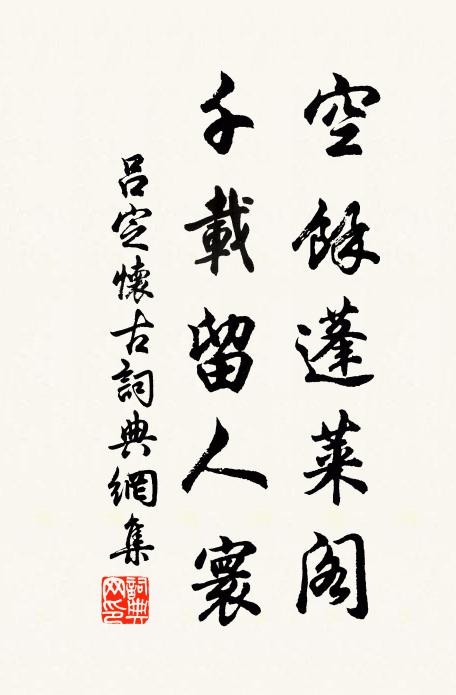 空餘蓬萊閣
千載留人寰
呂定懷古詞典網集
詞典
网印